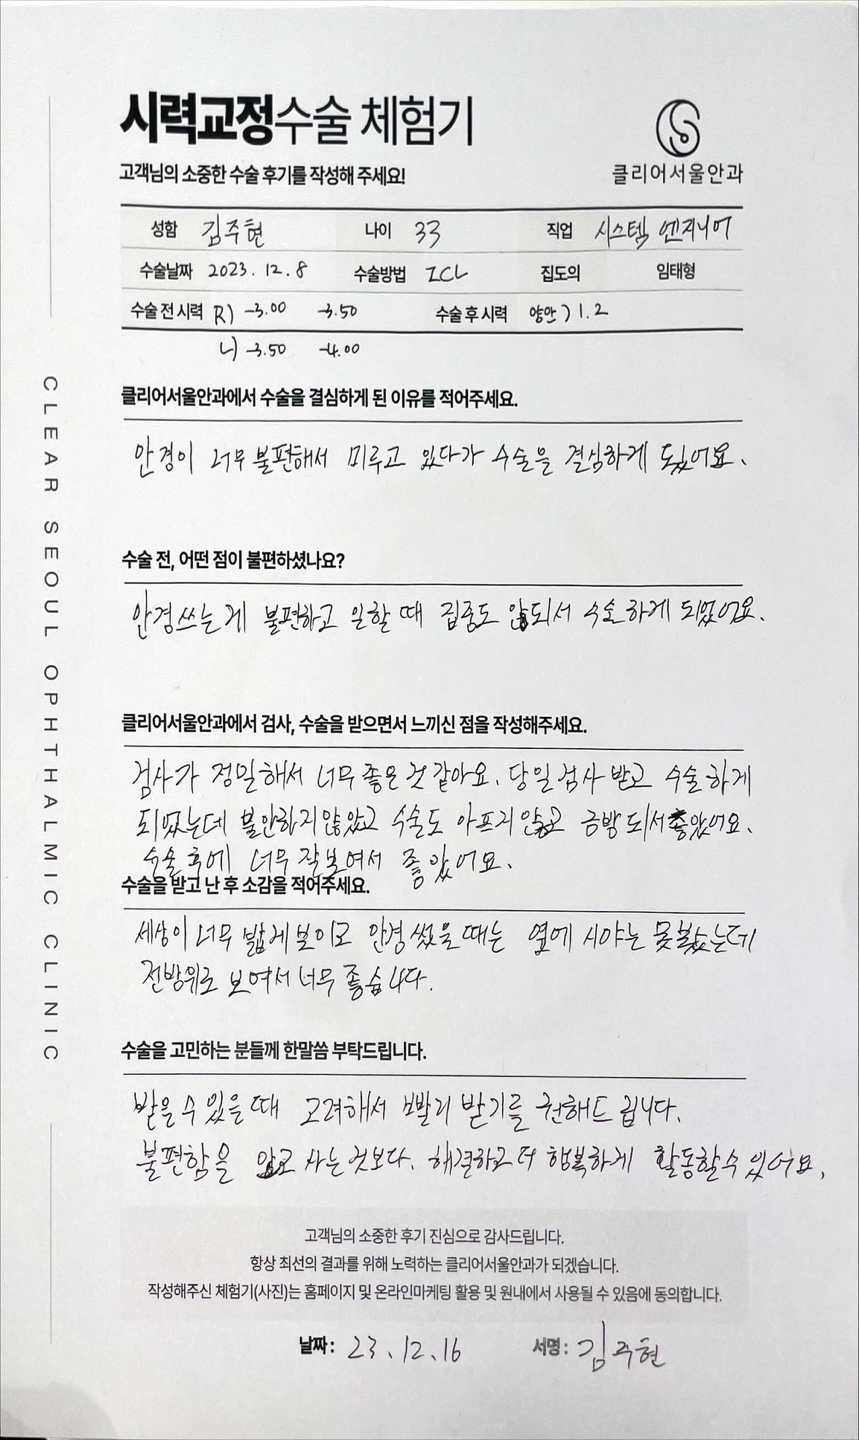 시력교정수술 체험기
고객님의 소중한 수술 후기를 작성해 주세요!
클리어서울안과
성함 김주현 나이 33 직업 시스템 엔지니어
수술날짜 2023. 12. 8 수술방법 ICL 집도의 임태형
수술 전 시력 R) -3.00 -3.50 수술 후 시력 양안) 1.2
L) -3.50 -4.00
클리어서울안과에서 수술을 결심하게 된 이유를 적어주세요.
안경이 너무 불편해서 미루고 있다가 수술을 결심하게 됬어요.
수술 전, 어떤 점이 불편하셨나요?
안경쓰는게 불편하고 일할 때 집중도 않되서 수술하게 되었어요.
클리어서울안과에서 검사, 수술을 받으면서 느끼신 점을 작성해주세요.
검사가 정밀해서 너무 좋은것 같아요. 당일검사 받고 수술하게
되었는데 불안하지않았고 수술도 아프지 않고 금방되서 좋았어요.
수술 후에 너무 잘보여서 좋았어요.
수술을 받고 난 후 소감을 적어주세요.
세상이 너무 밝게 보이고 안경 썼을때는 옆에 시야는 못봤는데
전방위로 보여서 너무 좋습니다.
수술을 고민하는 분들께 한말씀 부탁드립니다.
받을 수 있을때 고려해서 빨리 받기를 권해드립니다.
불편함을 안고 사는것보다. 해결하고 더 행복하게 활동할수 있어요.
고객님의 소중한 후기 진심으로 감사드립니다.
항상 최선의 결과를 위해 노력하는 클리어서울안과가 되겠습니다.
작성해주신 체험기(사진)는 홈페이지 및 온라인마케팅 활용 및 원내에서 사용될 수 있음에 동의합니다.
날짜 : 23. 12. 16 서명 : 김주현
CLEAR SEOUL OPHTHALMIC CLINIC